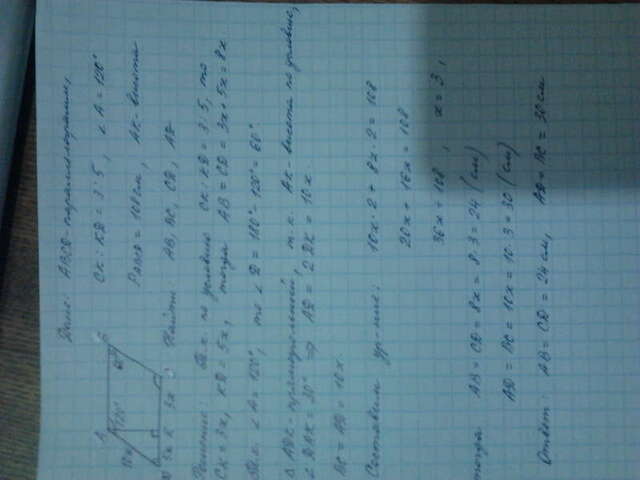 Дано: ABCD - параллелограмм,
CK : KD = 3 : 5, ∠A = 120°
P ABCD = 108 см, AK - высота
Найти: AB, BC, CD, AD
A
120°
10x
5x K 3x
Решение: Т.к. по условию CK : KD = 3 : 5, то
CK = 3x, KD = 5x, тогда AB = CD = 3x + 5x = 8x
Т.к. ∠A = 120°, то ∠D = 180° - 120° = 60°.
△ ADK - прямоугольный, т.к. AK - высота по условию,
∠DAK = 30° ⇒ AD = 2DK = 10x.
BC = AD = 10x.
Составим ур-ние: 10x · 2 + 8x · 2 = 108
20x + 16x = 108
36x = 108, x = 3,
тогда AB = CD = 8x = 8 · 3 = 24 (см)
AD = BC = 10x = 10 · 3 = 30 (см)
Ответ: AB = CD = 24 см, AD = BC = 30 см